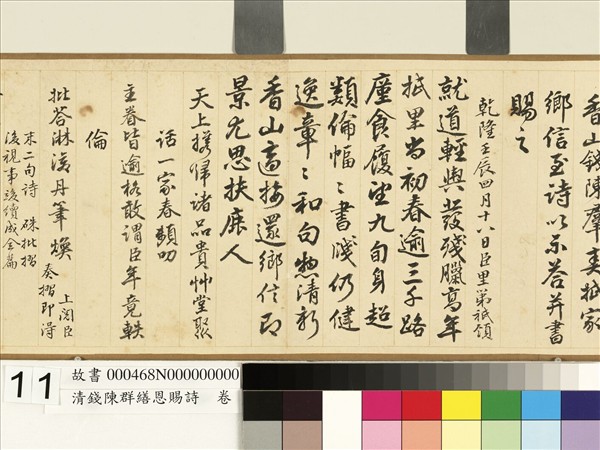 香山錢陳羣奏抵家
鄉信至詩以示答并書
賜之
乾隆壬辰四月十八日臣里第祇領
就道輕輿發殘臘高年
抵里尚初春逾三千路
塵食履望九旬身超
類倫幅〻書牋仍健
逸章〻和句愈清新
香山高接還鄉信即
景尤思扶鹿人
天上攜歸諸品貴艸堂聚
話一家春頻叨
主眷皆逾格敢謂臣年竟軼
倫
批答淋漓丹筆煥
上閱臣
奏摺即得
末二句詩 硃批摺
後視事後續成全篇
11
故書 000468N000000000
清錢陳群繕恩賜詩 卷